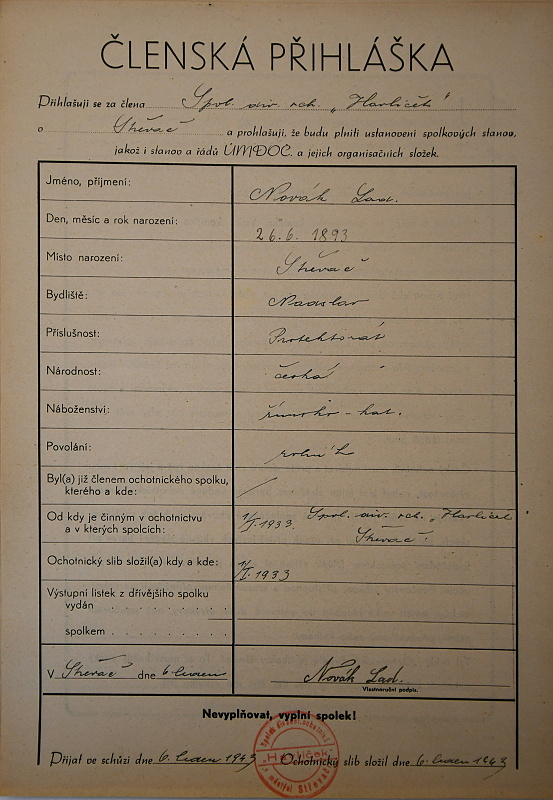 ČLENSKÁ PŘIHLÁŠKA
Přihlašuji se za člena Spol. div. och. „Havlíček“
o Střevač a prohlašuji, že budu plniti ustanovení spolkových stanov,
jakož i stanov a řádů ÚMDOČ. a jejich organisačních složek.
Jméno, příjmení: Novák Lad.
Den, měsíc a rok narození: 26.6. 1893
Místo narození: Střevač
Bydliště: Nadslav
Příslušnost: Protektorát
Národnost: česká
Náboženství: římsko-kat.
Povolání: rolník
Byl(a) již členem ochotnického spolku,
kterého a kde: /
Od kdy je činným v ochotnictvu 1/I. 1933. Spol. div. och. „Havlíček
a v kterých spolcích: Střevač.
Ochotnický slib složil(a) kdy a kde: 1/I. 1933
Výstupní lístek z dřívějšího spolku
vydán . . . . . . . . . .
spolkem . . . . . . . . . .
V Střevač dne 6. leden Novák Lad.
Vlastnoruční podpis.
Nevyplňovat, vyplní spolek!
Přijat ve schůzi dne 6. leden 1943 Ochotnický slib složil dne 6. leden 1943
„Havlíček“
Střevač